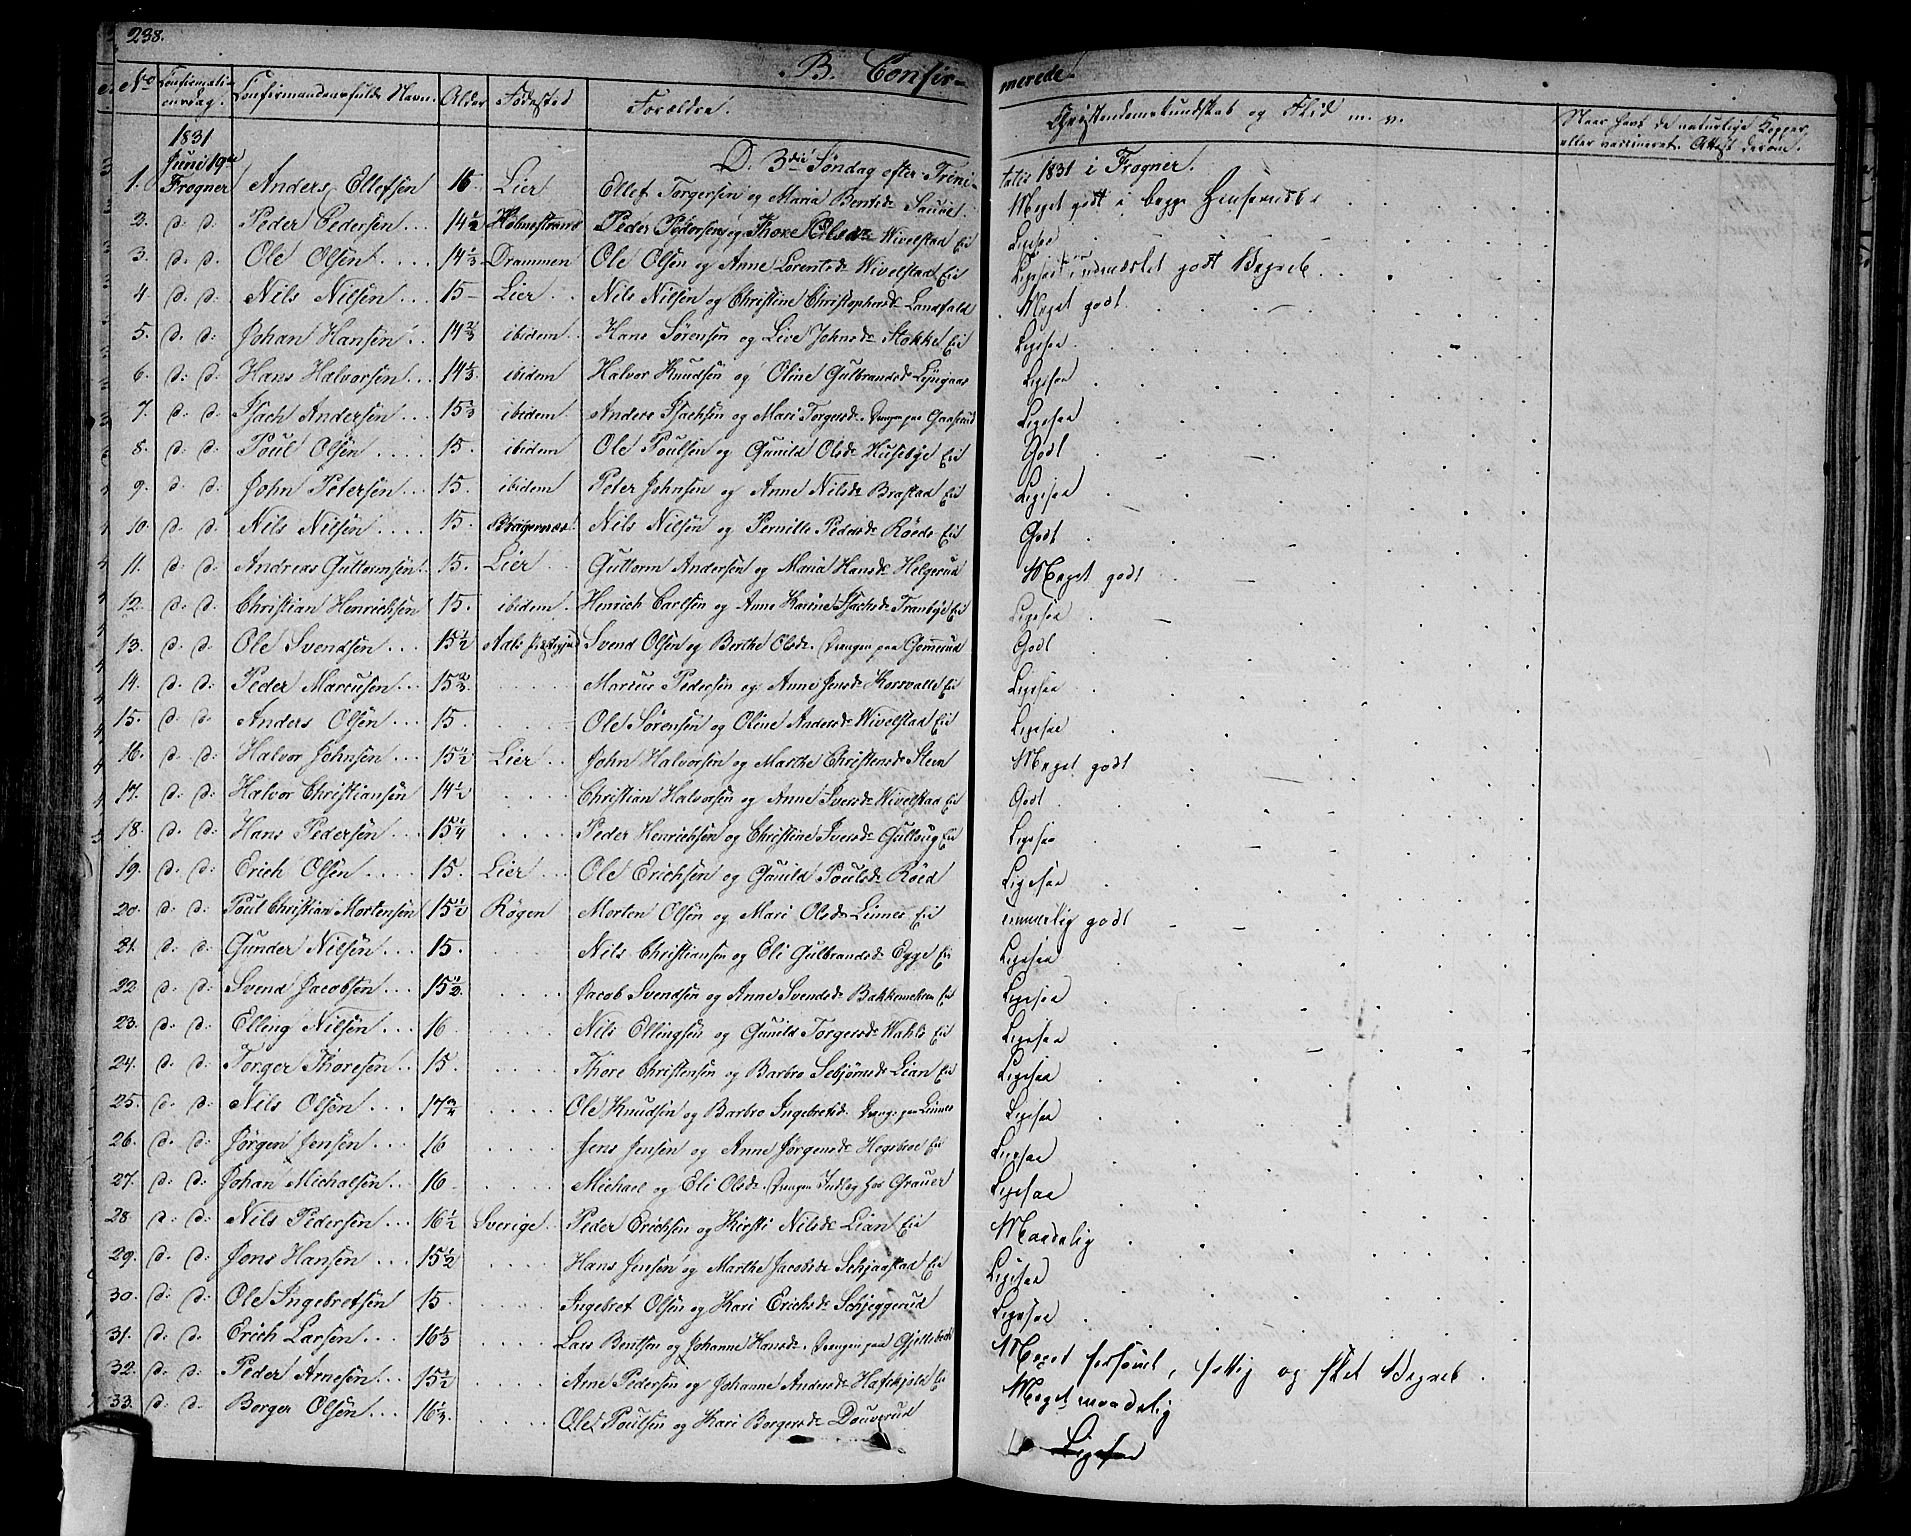 238.
B. Confirmerede.
No Confirmationsdag. Confirmandens fulde Navn. Alder Fødested Forældre. Christendomskundskab og Flid m. v. Naar havt de naturlige Kopper, eller vaccineret. Attest derom.
1831 D. 3die Søndag efter Trinitatis 1831 i Frogner.
Juni 19de
1. Frogner Anders Ellefsen 16 Lier Ellef Torgersen og Maria Bentsd. Meget godt i begge Henseender
2. d: d: Peder Pedersen 14 1/2 Holmestrand Peder Pedersen og Thore Olsdr Wivelstad Eie Ligesaa
3. d: d: Ole Olsen 14 1/3 Drammen Ole Olsen og Anne Lorentsd: Wivelstad Eie Ligesaa godt Begreb
4 d: d: Nils Nilsen 15 Lier Nils Nilsen og Christine Christophersd: Landfald Meget godt
5. d: d: Johan Hansen 14 2/3 ibidem Hans Sørensen og Live Johnsd: Stokke Eie Ligesaa
6. d: d: Hans Halvorsen ibidem Halvor Knudsen og Oline Gulbrandsd: Ligesaa
7. d: d: Isach Andersen 15 2/3 ibidem Anders Isachsen og Mari Torgersd. Drengen paa Gaaserud Ligesaa
8. d: d: Poul Olsen 15. ibidem Ole Poulsen og Gunild Olsd: Husebye Eie Godt
9. d: d: John Petersen 15. ibidem Peter Johnsen og Anne Nilsd: Brastad Eie Ligesaa
10. d: d: Nils Nilsen 15. Bragernæs Nils Nilsen og Pernille Pedersd: Røeds Eie Godt
11. d: d: Andreas Guttormsen 15. Lier Guttorm Andersen og Maria Hansd: Helgerud Meget godt
12. d: d: Christian Henrichsen 15. ibidem Henrich Carlsen og Anne Karine Isachsd: Tranbye Eie Ligesaa
13. d: d: Ole Svendsen 15 1/2 Aals Svend Olsen og Berthe Olsd. Drengen paa Gommerud Godt
14. d: d: Peder Marcusen 15 2/3 Marcus Pedersen og Anne Jensd: Korsvalle Eie Ligesaa
15. d: d: Anders Olsen 15. Ole Sørensen og Oline Andersd: Wivelstad Eie Ligesaa
16. d: d: Halvor Johnsen 15 1/2 Lier John Halvorsen og Marthe Christensd: Steen Meget godt
17. d: d: Halvor Christiansen 14 1/2 Christian Halvorsen og Anne Iversd: Wivelstad Eie Godt
18. d: d: Hans Pedersen 15 1/4 Peder Henrichsen og Christine Iversd: Gullaug Eie Ligesaa
19. d: d: Erich Olsen 15. Lier Ole Erichsen og Gunild Poulsd: Røed Ligesaa
20. d: d: Poul Christian Mortensen 15 1/2 Røgen Morten Olsen og Mari Olsd: Linnes Eie temmelig godt
21. d: d: Gunder Nilsen 15. Nils Christiansen og Eli Gulbrandsd: Egge Eie Ligesaa
22. d: d: Svend Jacobsen 15 1/2 Jacob Svendsen og Anne Svendsd: Eie Ligesaa
23. d: d: Elling Nilsen 16 Nils Ellingsen og Gunild Torgersd: Wahls Eie Ligesaa
24. d: d: Torger Thoresen 15. Thore Christensen og Barbro Sebjørnsd: Lian Eie Ligesaa
25. d: d: Nils Olsen 17 3/4 Ole Knudsen og Barbro Ingebretsd: Dreng: paa Linnes Ligesaa
26. d: d: Jørgen Jensen 16 Jens Jensen og Anne Jørgensd: Hegsbroe Eie Ligesaa
27. d: d: Johan Michalsen 16 Michael og Eli Olsd. Drengen Indlog hos Grauer Ligesaa
28. d: d: Nils Pedersen 16 1/2 Sverige Peder Erichsen og Kirsti Nilsd: Lian Eie Maadelig
29. d: d: Jens Hansen 15 1/2 Hans Jensen og Marthe Jacobsd: Schjaastad Eie Ligesaa
30. d: d: Ole Ingebretsen 15. Ingebret Olsen og Kari Erichsd: Schjeggerud Ligesaa
31. d: d: Erich Larsen Lars Bentsen og Johanne Hansd. Drengen paa Gjellebæk Meget forsømt, og slet Begreb
32. d: d: Peder Arnesen 15 1/2 Arne Pedersen og Johanne Andersd: Eie Meget maadelig
33. d: d: Borger Olsen 16 1/3 Ole Poulsen og Kari Borgersd: Douverud Ligesaa